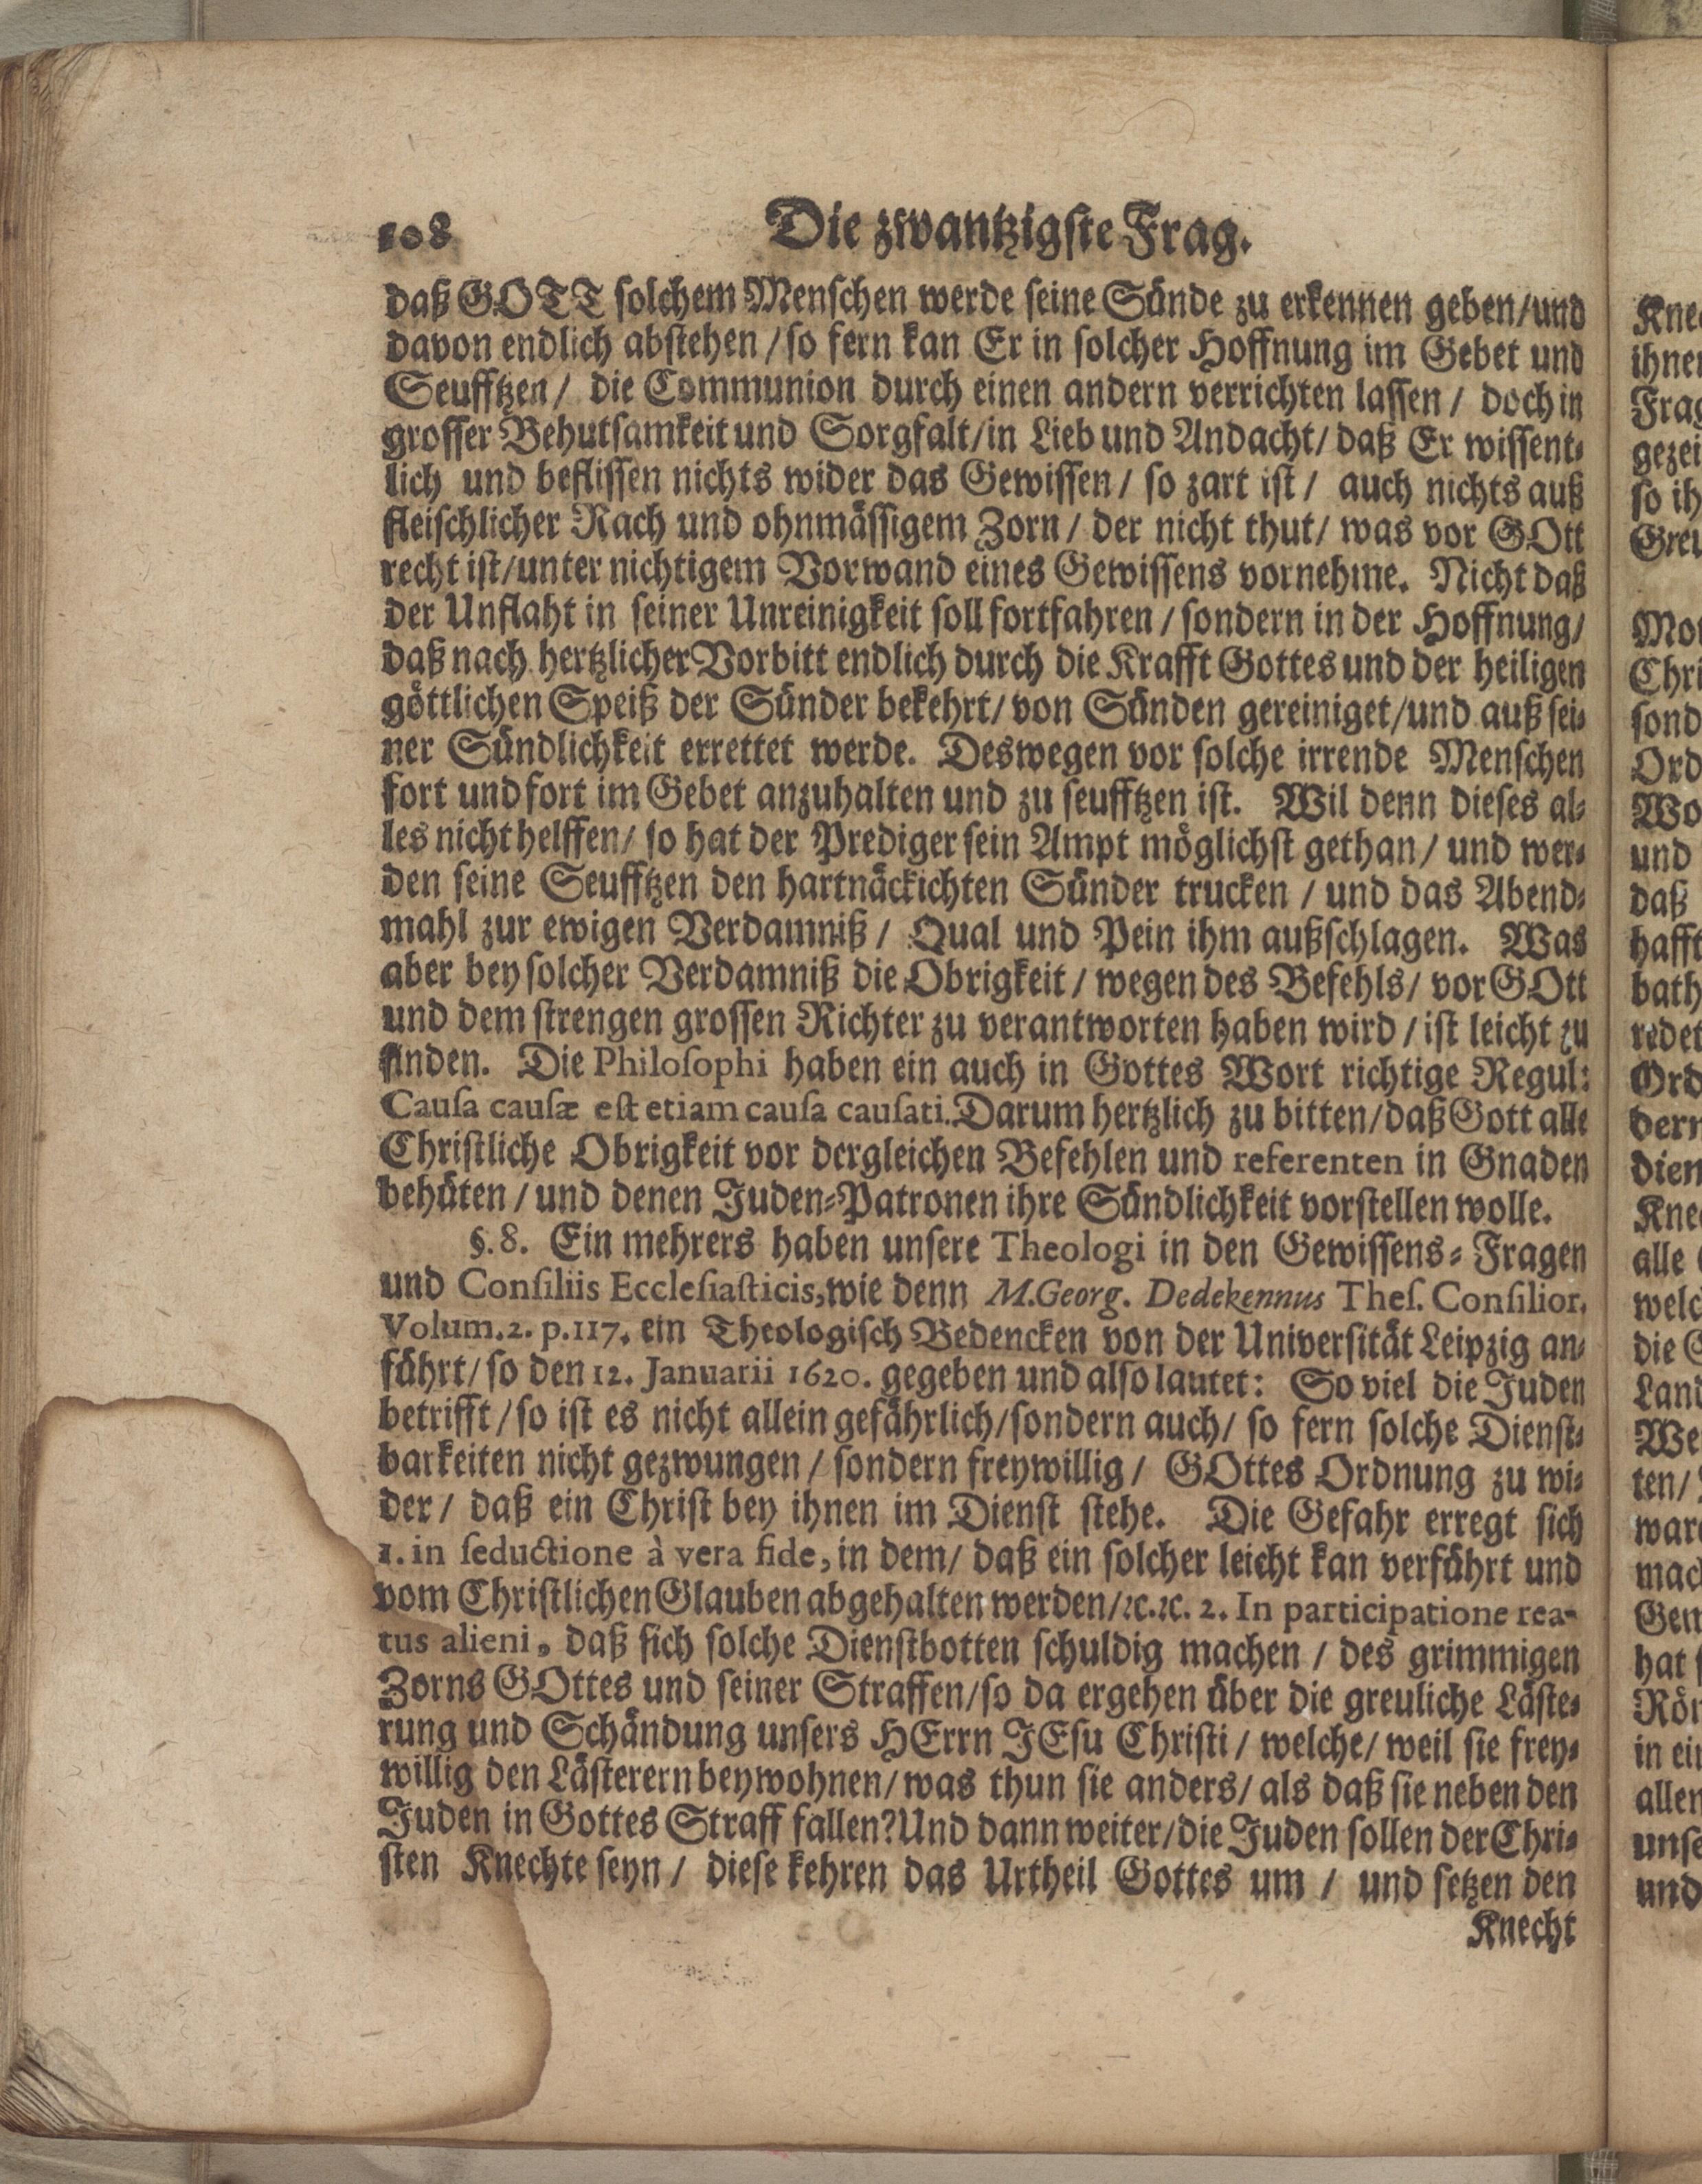 108 Die zwantzigste Frag.
daß GOTT solchem Menschen werde seine Sünde zu erkennen geben/und
davon endlich abstehen/so fern kan Er in solcher Hoffnung im Gebet und
Seufftzen/ die Communion durch einen andern verrichten lassen/ doch in
grosser Behutsamkeit und Sorgfalt/in Lieb und Andacht/daß Er wissent-
lich und beflissen nichts wider das Gewissen/ so zart ist/ auch nichts auß
fleischlicher Rach und ohnmässigem Zorn/ der nicht thut/ was vor GOtt
recht ist/unter nichtigem Vorwand eines Gewissens vornehme. Nicht daß
der Unflaht in seiner Unreinigkeit soll fortfahren/sondern in der Hoffnung/
daß nach hertzlicher Vorbitt endlich durch die Krafft Gottes und der heiligen
göttlichen Speiß der Sünder bekehrt/von Sünden gereiniget/und auß sei-
ner Sündlichkeit errettet werde. Deswegen vor solche irrende Menschen
fort und fort im Gebet anzuhalten und zu seufftzen ist. Wil denn dieses al-
les nicht helffen/ so hat der Prediger sein Ampt möglichst gethan/ und wer-
den seine Seufftzen den hartnäckichten Sünder trucken/ und das Abend-
mahl zur ewigen Verdamniß/ Qual und Pein ihm außschlagen. Was
aber bey solcher Verdamniß die Obrigkeit/wegen des Befehls/ vor GOtt
und dem strengen grossen Richter zu verantworten haben wird/ist leicht zu
finden. Die Philosophi haben ein auch in Gottes Wort richtige Regul:
Causa causæ est etiam causa causati. Darum hertzlich zu bitten/daß Gott alle
Christliche Obrigkeit vor dergleichen Befehlen und referenten in Gnaden
behüten/und denen Juden-Patronen ihre Sündlichkeit vorstellen wolle.
§. 8. Ein mehrers haben unsere Theologi in den Gewissens-Fragen
und Consiliis Ecclesiasticis, wie denn M. Georg. Dedekennus Thes. Consilior.
Volum. 2. p. 117. ein Theologisch Bedencken von der Universität Leipzig an-
führt/so den 12. Januarii 1620. gegeben und also lautet: So viel die Juden
betrifft/so ist es nicht allein gefährlich/sondern auch/ so fern solche Dienst-
barkeiten nicht gezwungen/sondern freywillig/ GOttes Ordnung zu wi-
der/ daß ein Christ bey ihnen im Dienst stehe. Die Gefahr erregt sich
1. in seductione à vera fide, in dem/ daß ein solcher leicht kan verführt und
vom Christlichen Glauben abgehalten werden/ꝛc.ꝛc. 2. In participatione rea-
tus alieni, daß sich solche Dienstbotten schuldig machen/ des grimmigen
Zorns GOttes und seiner Straffen/so da ergehen über die greuliche Läste-
rung und Schändung unsers HErrn JEsu Christi/ welche/ weil sie frey-
willig den Lästerern beywohnen/was thun sie anders/als daß sie neben den
Juden in Gottes Straff fallen? Und dann weiter/die Juden sollen der Chri-
sten Knechte seyn/ diese kehren das Urtheil Gottes um/ und setzen den
Knecht